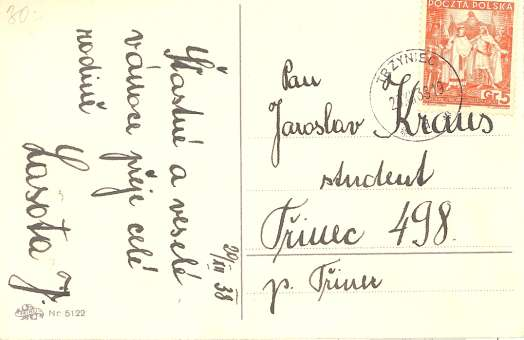 80.-
Šťastné a veselé
vánoce přeje celé
rodině
Lasota J.
20/XII 38
Nr. 5122
POCZTA POLSKA
Gr 5
TRZYNIEC
Pan
Jaroslav Kraus
student
Třinec 498.
p. Třinec